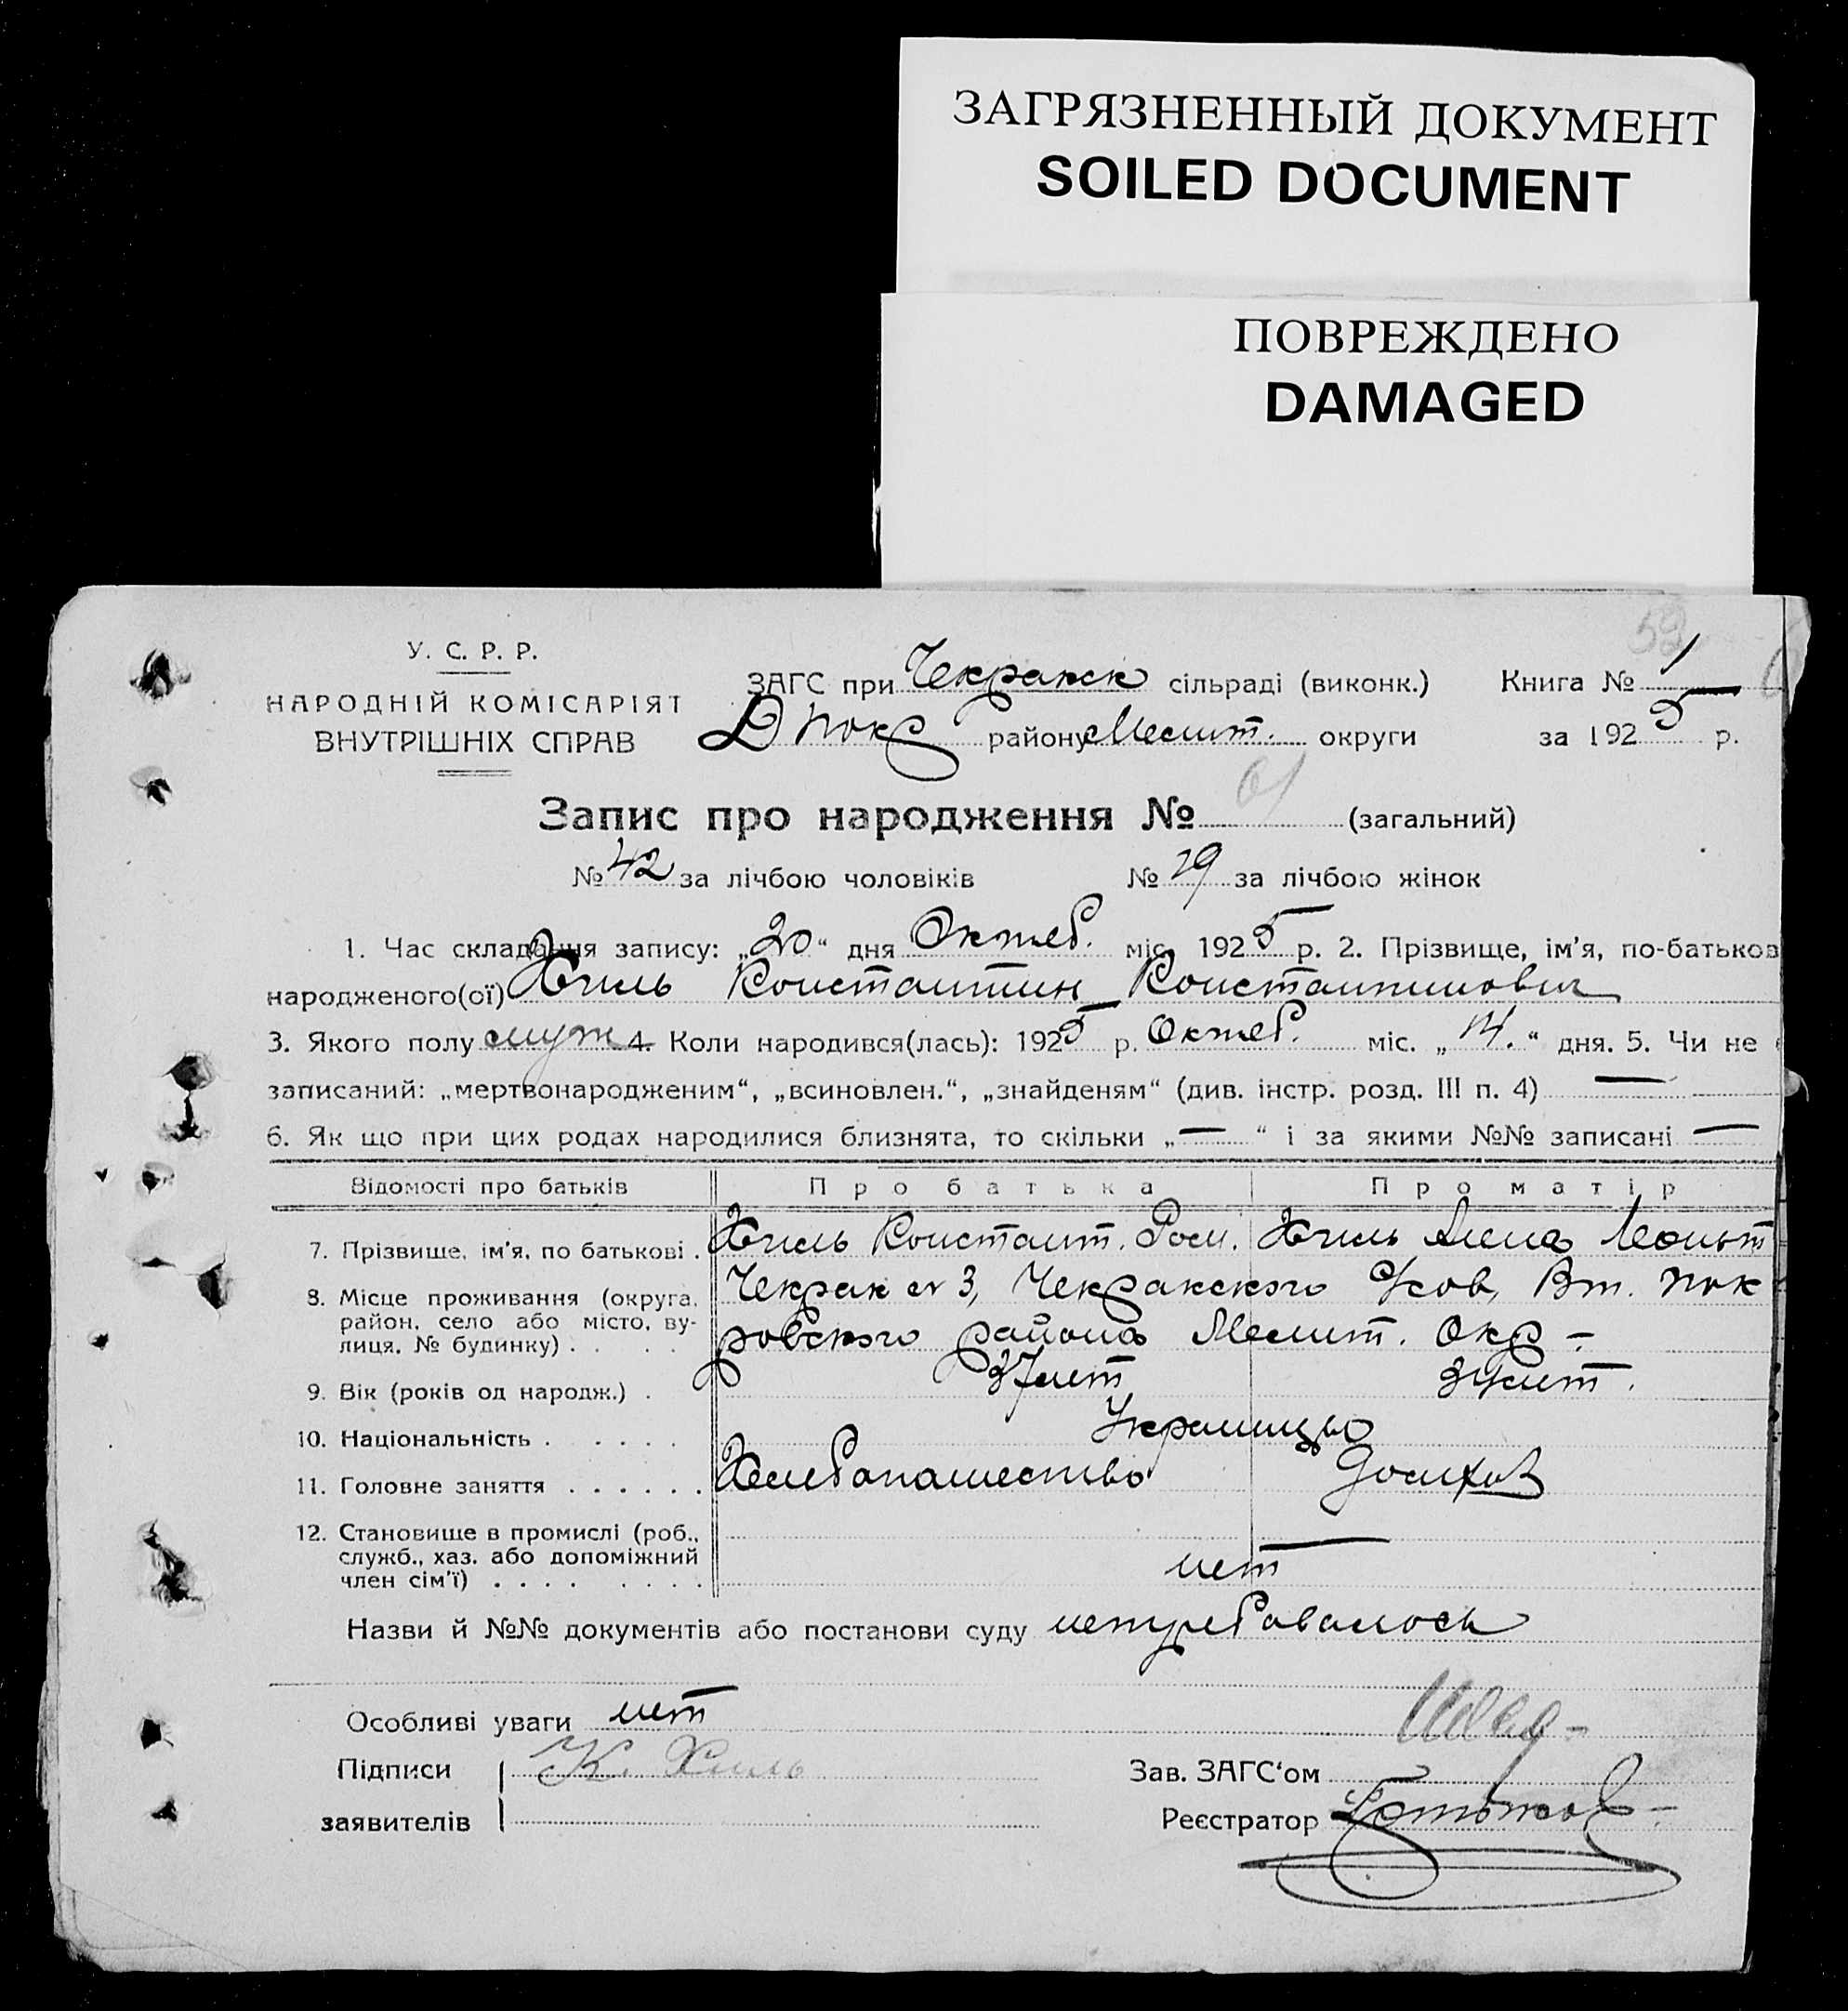 ЗАГРЯЗНЕННЫЙ ДОКУМЕНТ
SOILED DOCUMENT
ПОВРЕЖДЕНО
DAMAGED
59
У. С. Р. Р.
НАРОДНІЙ КОМІСАРІЯТ
ВНУТРІШНІХ СПРАВ
ЗАГС при Чекракск сільраді (виконк.) Книга № 1
покр району Мелит. округи за 1925 р.
Запис про народження № 61 (загальний)
№ 42 за лічбою чоловіків № 19 за лічбою жінок
1. Час складання запису: „20“ дня Октяб. міс. 1925 р. 2. Прізвище, ім’я, по-батьков
народженого(ої) Хиль Константин Константинович
3. Якого полу муж 4. Коли народився(лась): 1925 р. Октяб. міс. „14.“ дня. 5. Чи не
записаний: „мертвонародженим“, „всиновлен.“, „знайденям“ (див. інстр. розд. III п. 4) —
6. Як що при цих родах народилися близнята, то скільки „—“ і за якими №№ записані —
Відомості про батьків Про батька Про матір
7. Прізвище, ім’я, по батькові . Хиль Констант. Ром. Хиль Анна Леонт
8. Місце проживання (округа, район, село або місто, вулиця, № будинку) . . . . Чекрак № 3, Чекракского Вт. пок
ровского района Мелит. Окр –
9. Вік (років од народж.) . 37 лет 34 лет.
10. Національність . . . . . Украинцы
11. Головне заняття . . . . . . Хлебопашество Домхоз
12. Становище в промислі (роб., служб., хаз. або допоміжний член сім’ї) . . . . . . . . нет
Назви й №№ документів або постанови суду нетребовалось
Особливі уваги нет
Підписи К. Хиль Зав. ЗАГС‘ом
заявителів Реєстратор